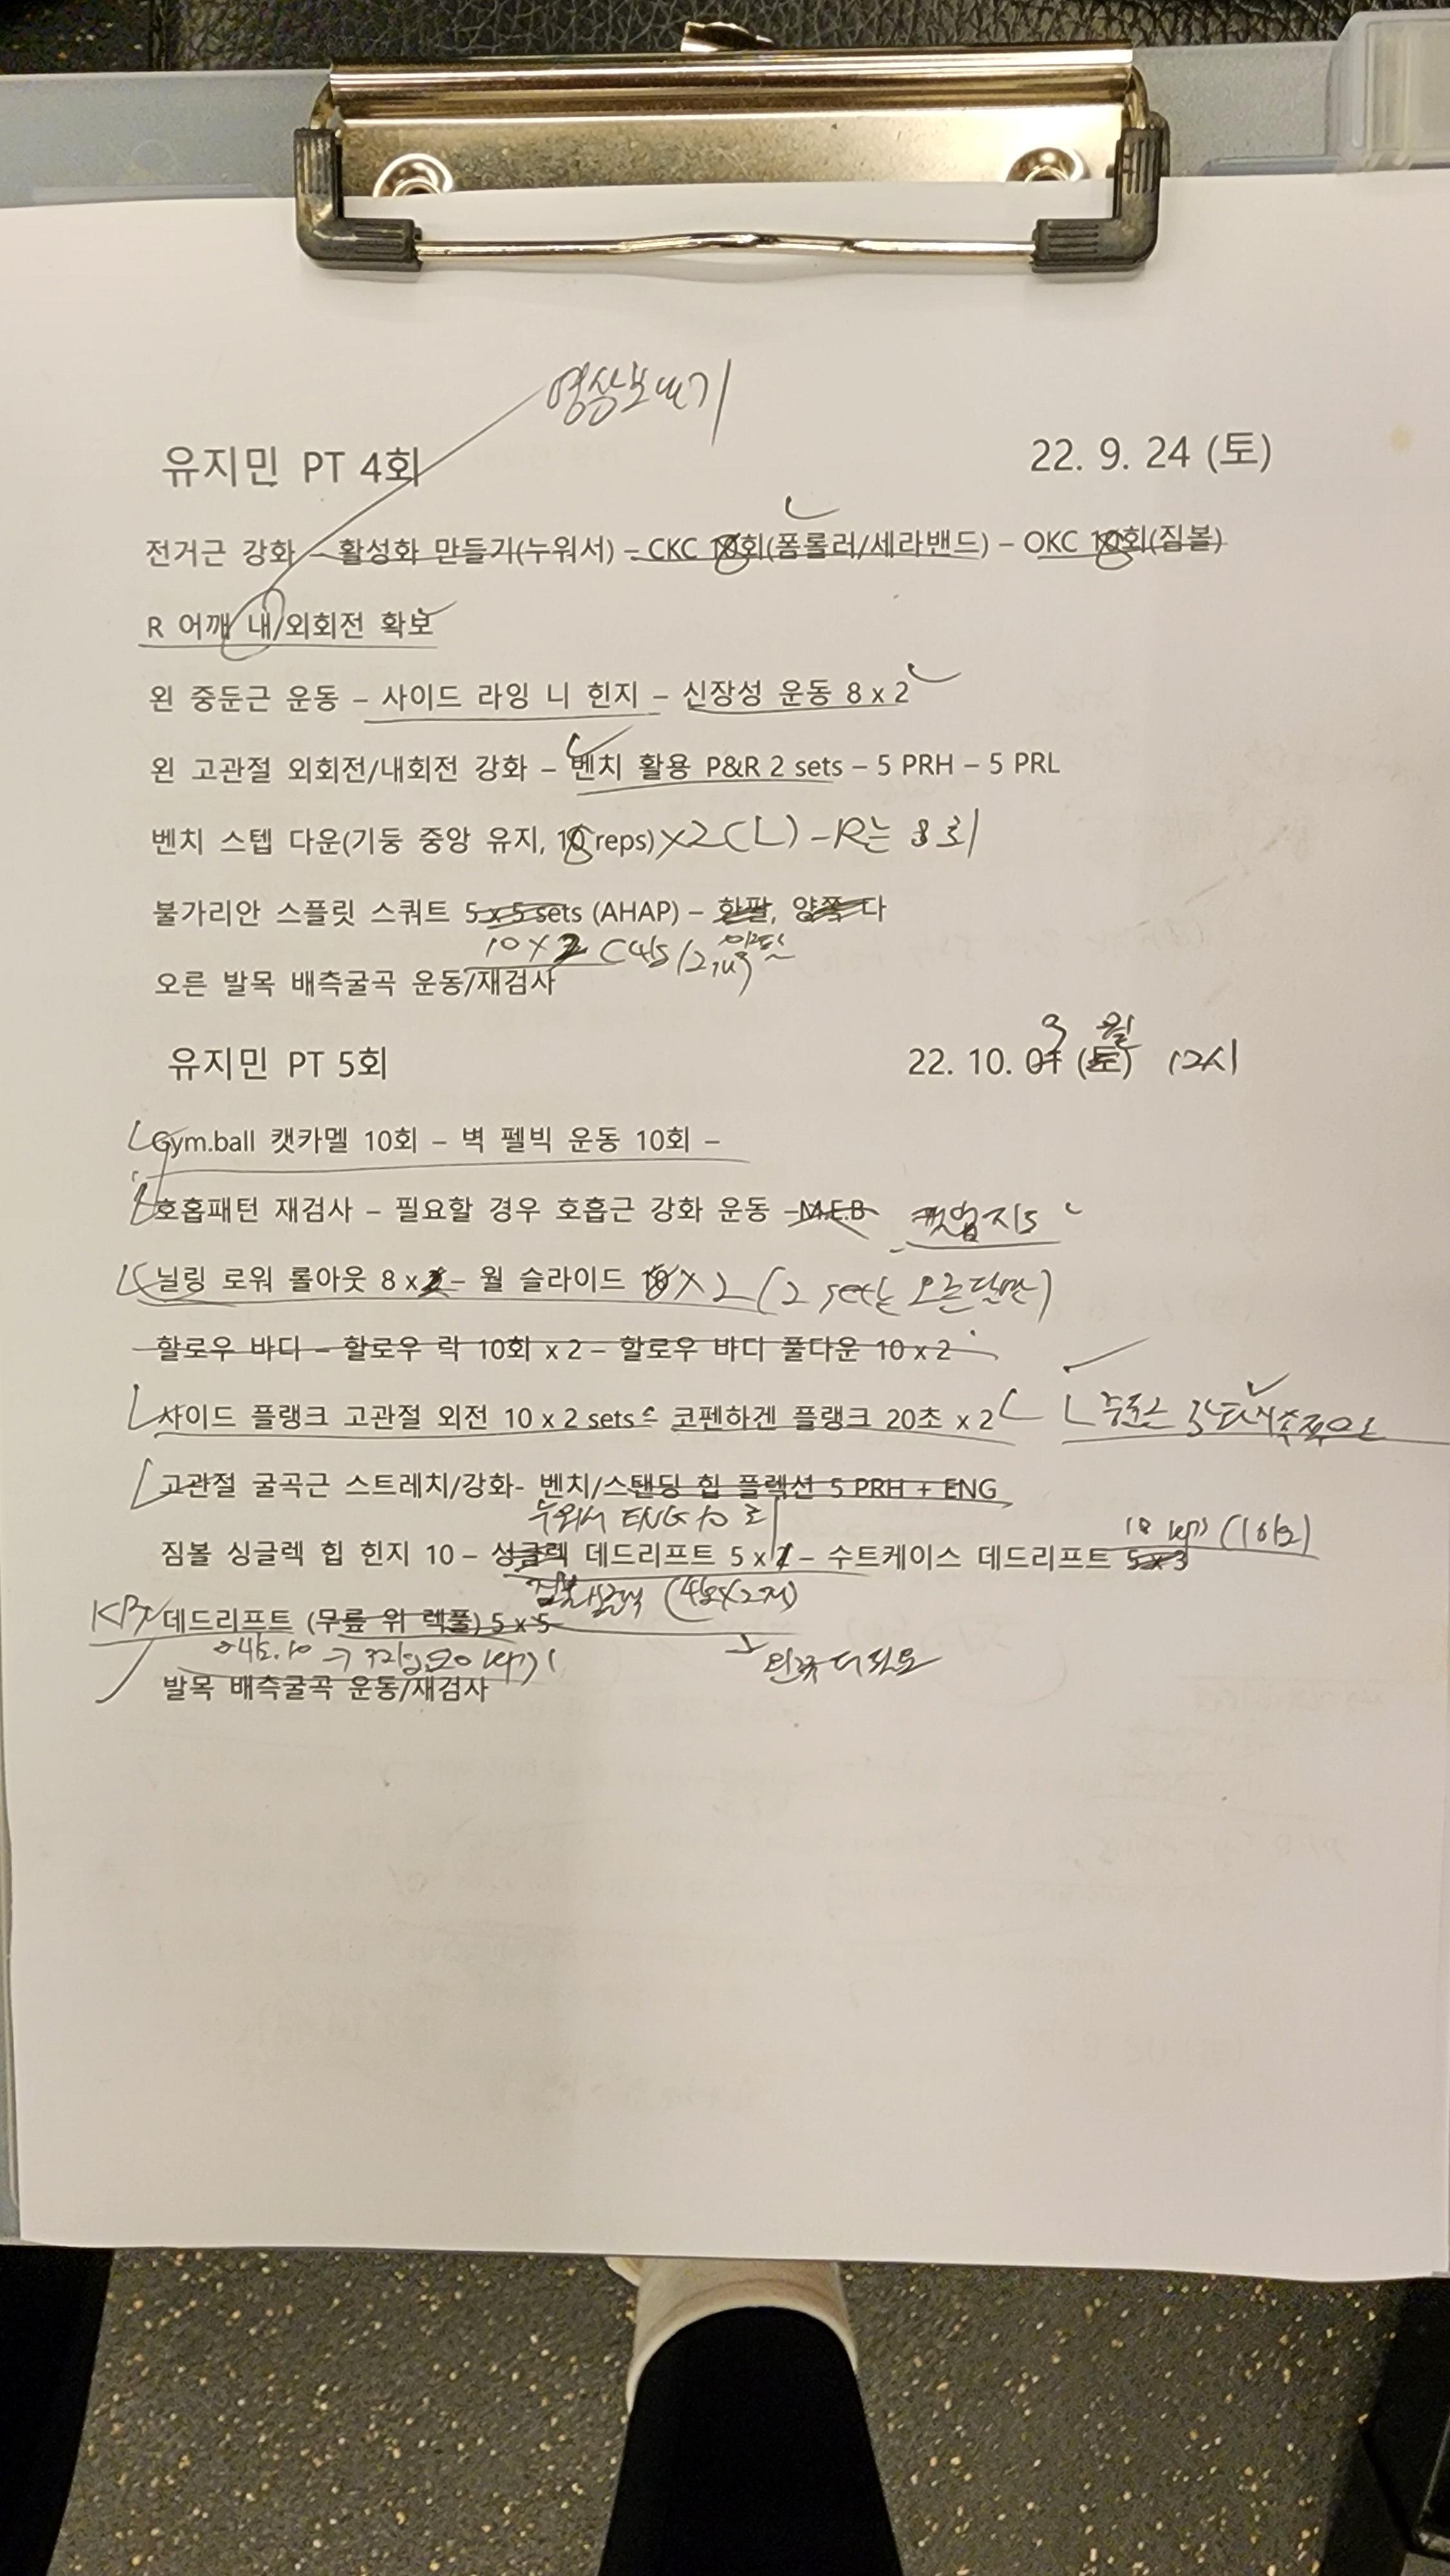 영상보내기
유지민 PT 4회 22. 9. 24 (토)
전거근 강화 – 활성화 만들기(누워서) – CKC 8회(폼롤러/세라밴드) – OKC 8회(짐볼)
R 어깨 내/외회전 확보
왼 중둔근 운동 – 사이드 라잉 니 힌지 – 신장성 운동 8 x 2
왼 고관절 외회전/내회전 강화 – 벤치 활용 P&R 2 sets – 5 PRH – 5 PRL
벤치 스텝 다운(기둥 중앙 유지, 8 reps) x2 (L) - R는 8회
불가리안 스플릿 스쿼트 5 x 5 sets (AHAP) – 한팔, 양쪽 다
10 x 2
오른 발목 배측굴곡 운동/재검사
유지민 PT 5회 22. 10. 03 (월) 12시
Gym.ball 캣카멜 10회 – 벽 펠빅 운동 10회 –
호흡패턴 재검사 – 필요할 경우 호흡근 강화 운동 – M.E.B
닐링 로워 롤아웃 8 x – 월 슬라이드 x 2 (2 set는 오른팔만)
할로우 바디 – 할로우 락 10회 x 2 – 할로우 바디 풀다운 10 x 2
사이드 플랭크 고관절 외전 10 x 2 sets – 코펜하겐 플랭크 20초 x 2
고관절 굴곡근 스트레치/강화- 벤치/스탠딩 힙 플렉션 5 PRH + ENG
누워서 ENG 10회
10 reps
짐볼 싱글렉 힙 힌지 10 – 싱글렉 데드리프트 5 x – 수트케이스 데드리프트 5 x 3
짐볼싱글렉
데드리프트 (무릎 위 렉풀) 5 x 5
발목 배측굴곡 운동/재검사